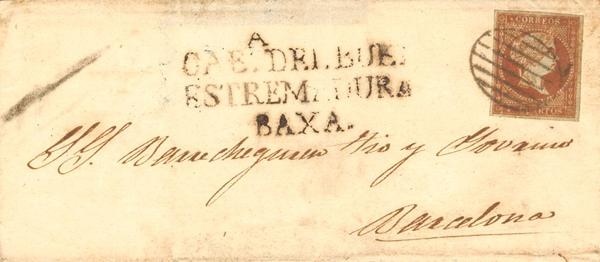 A
CAB. DEL BUEI
ESTREMADURA
BAXA.
CORREOS
S.S. Barrecheguren Tio y Jovann
Barcelona